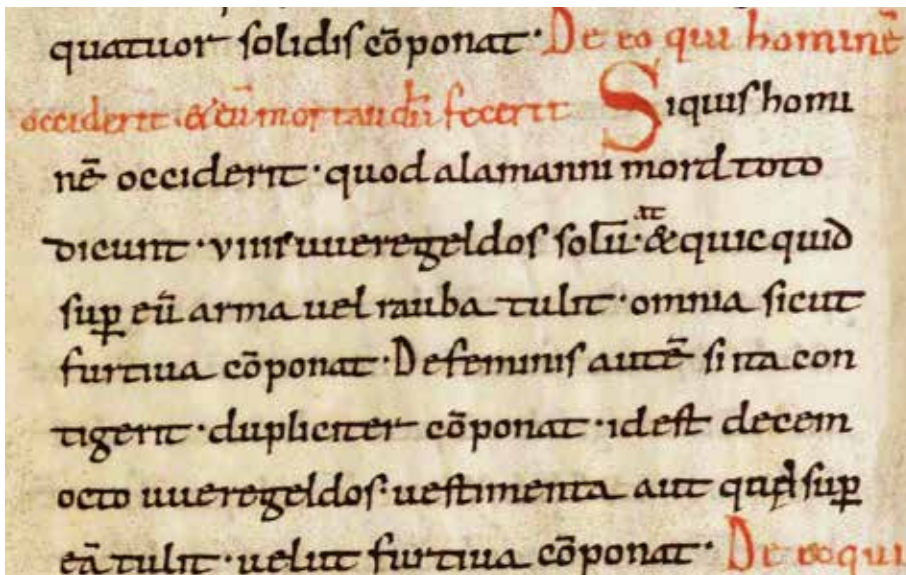 quatuor solidis cōponat · De eo qui hominē
occiderit · & eū mortaudū fecerit Siquis homi
nē occiderit · quod alamanni mordtoto
dicunt · viiii uueregeldos solu̅at · & quicquid
sup eū arma uel rauba tulit · omnia sicut
furtiua cōponat · De feminis autē si ita con
tigerit · dupliciter cōponat · idest decem
octo uueregeldos · uestimenta aut sup
eā tulit · uelut furtiua cōponat · De eo qui